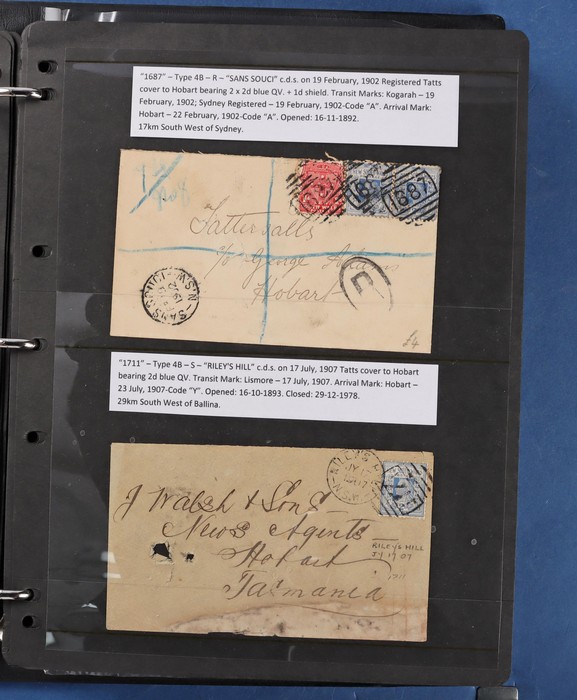 "1687" – Type 4B – R – "SANS SOUCI" c.d.s. on 19 February, 1902 Registered Tatts
cover to Hobart bearing 2 x 2d blue QV. + 1d shield. Transit Marks: Kogarah – 19
February, 1902; Sydney Registered – 19 February, 1902-Code "A". Arrival Mark:
Hobart – 22 February, 1902-Code "A". Opened: 16-11-1892.
17km South West of Sydney.
Tattersalls
c/o George Adams
Hobart
SANS SOUCI N.S.W
£4
"1711" – Type 4B – S – "RILEY'S HILL" c.d.s. on 17 July, 1907 Tatts cover to Hobart
bearing 2d blue QV. Transit Mark: Lismore – 17 July, 1907. Arrival Mark: Hobart –
23 July, 1907-Code "Y". Opened: 16-10-1893. Closed: 29-12-1978.
29km South West of Ballina.
J Walsh & Sons
News Agents
Hobart
Tasmania
RILEYS HILL
JY 17 07
1711